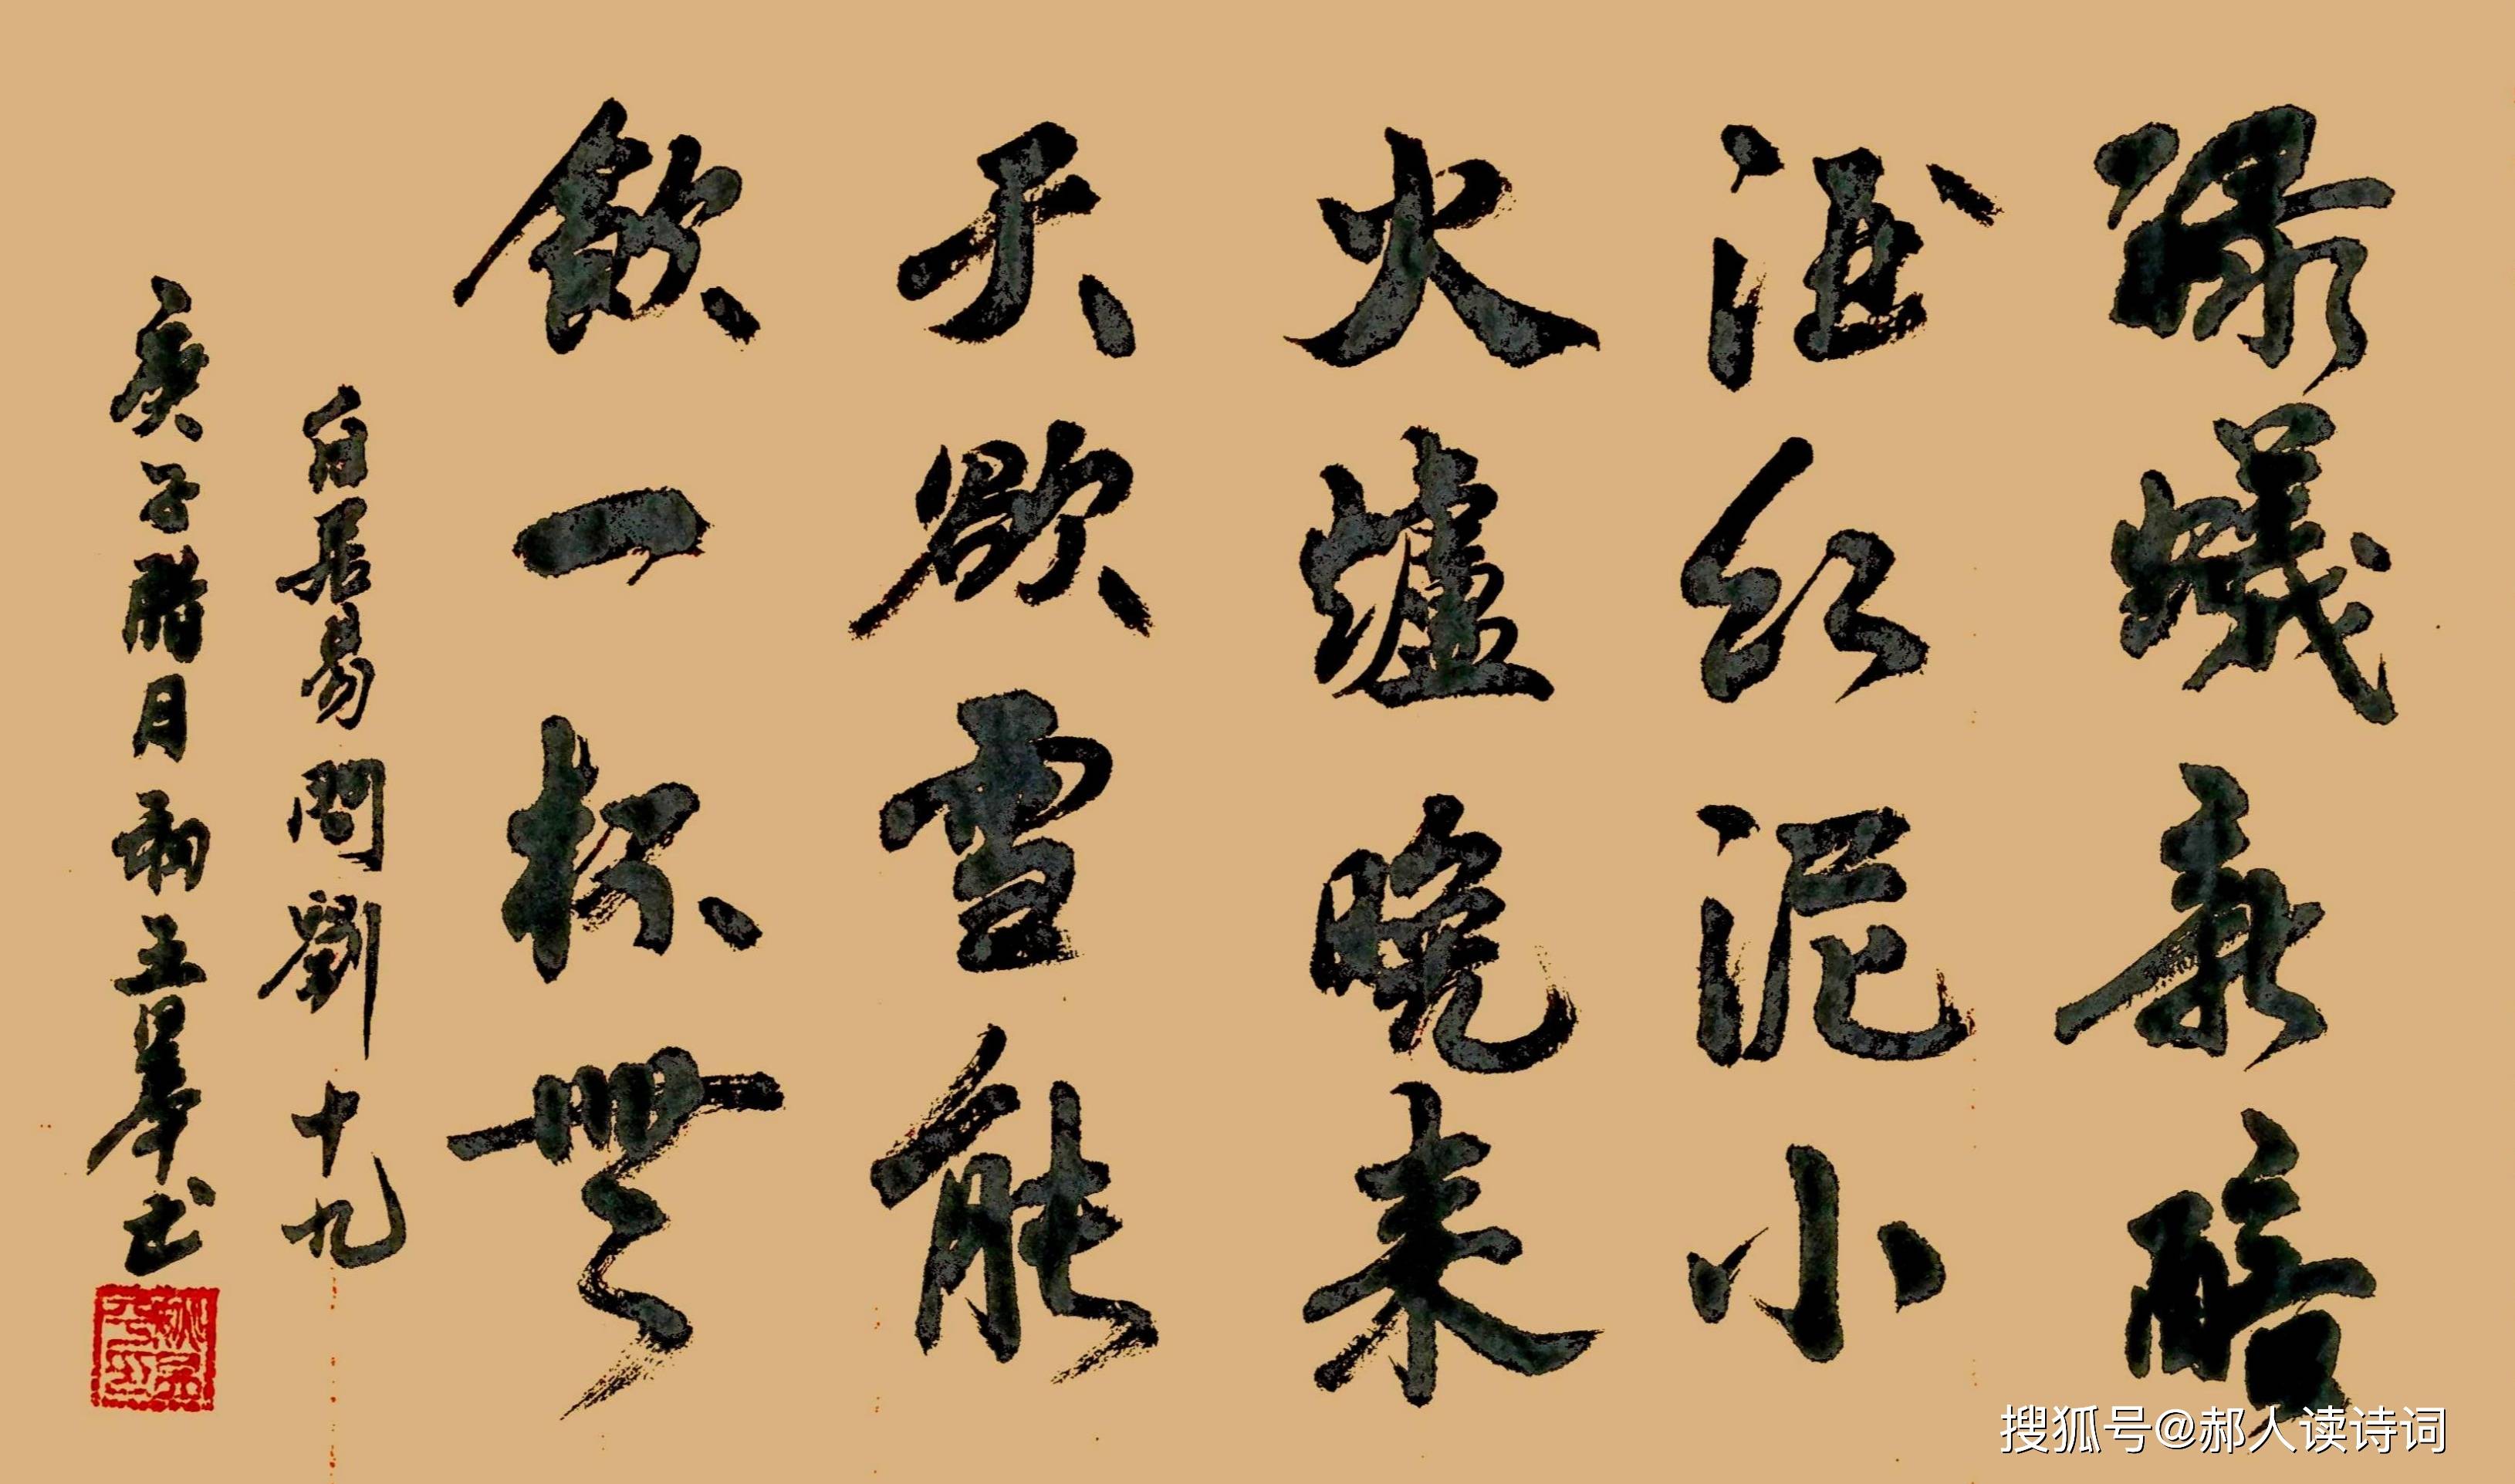 绿蟻新醅
酒红泥小
火爐晚来
天欲雪能
飲一杯無
白居易問劉十九
庚子腊月初王书
搜狐号@郝人读诗词